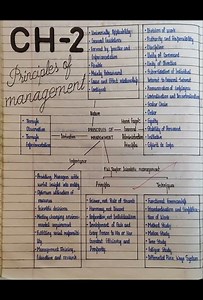 CH-2
Principles of
management
Nature
• Universally Applicability
• General Guidelines
• Formed by Practice and
Experimentation
• Flexible
• Mainly Behavioural
• Cause and Effect relationship
• Contingent
• Division of work
• Authority and Responsibility
• Discipline
• Unity of Command
• Unity of Direction
• Subordination of Individual
Interest to General Interest
• Remuneration of Employees
• Centralisation and Decentralisation
• Scalar Chain
• Order
• Equity
• Stability of Personnel
• Initiative
• Esprit De Corps
• Through
Observation
• Through
Experimentation
Derivation
PRINCIPLES OF
MANAGEMENT
Henri Fayol's
General
Management
Importance
• Providing Managers with
useful Insight into reality
• Optimum utilisation of
resources
• Scientific decisions
• Meeting changing environ-
mental requirement
• Fulfilling social responsibi-
lity
• Management Training,
Education and research
F.W. Taylor Scientific management
Principles
Techniques
• Science, not Rule of Thumb
• Harmony, not Discord
• Cooperation, not Individualism
• Development of Each and
Every Person to His or Her
Greatest Efficiency and
Prosperity
• Functional Foremanship
• Standardisation and Simplifica-
tion of Work
• Method Study
• Motion Study
• Time Study
• Fatigue Study
• Differential Piece Wage System